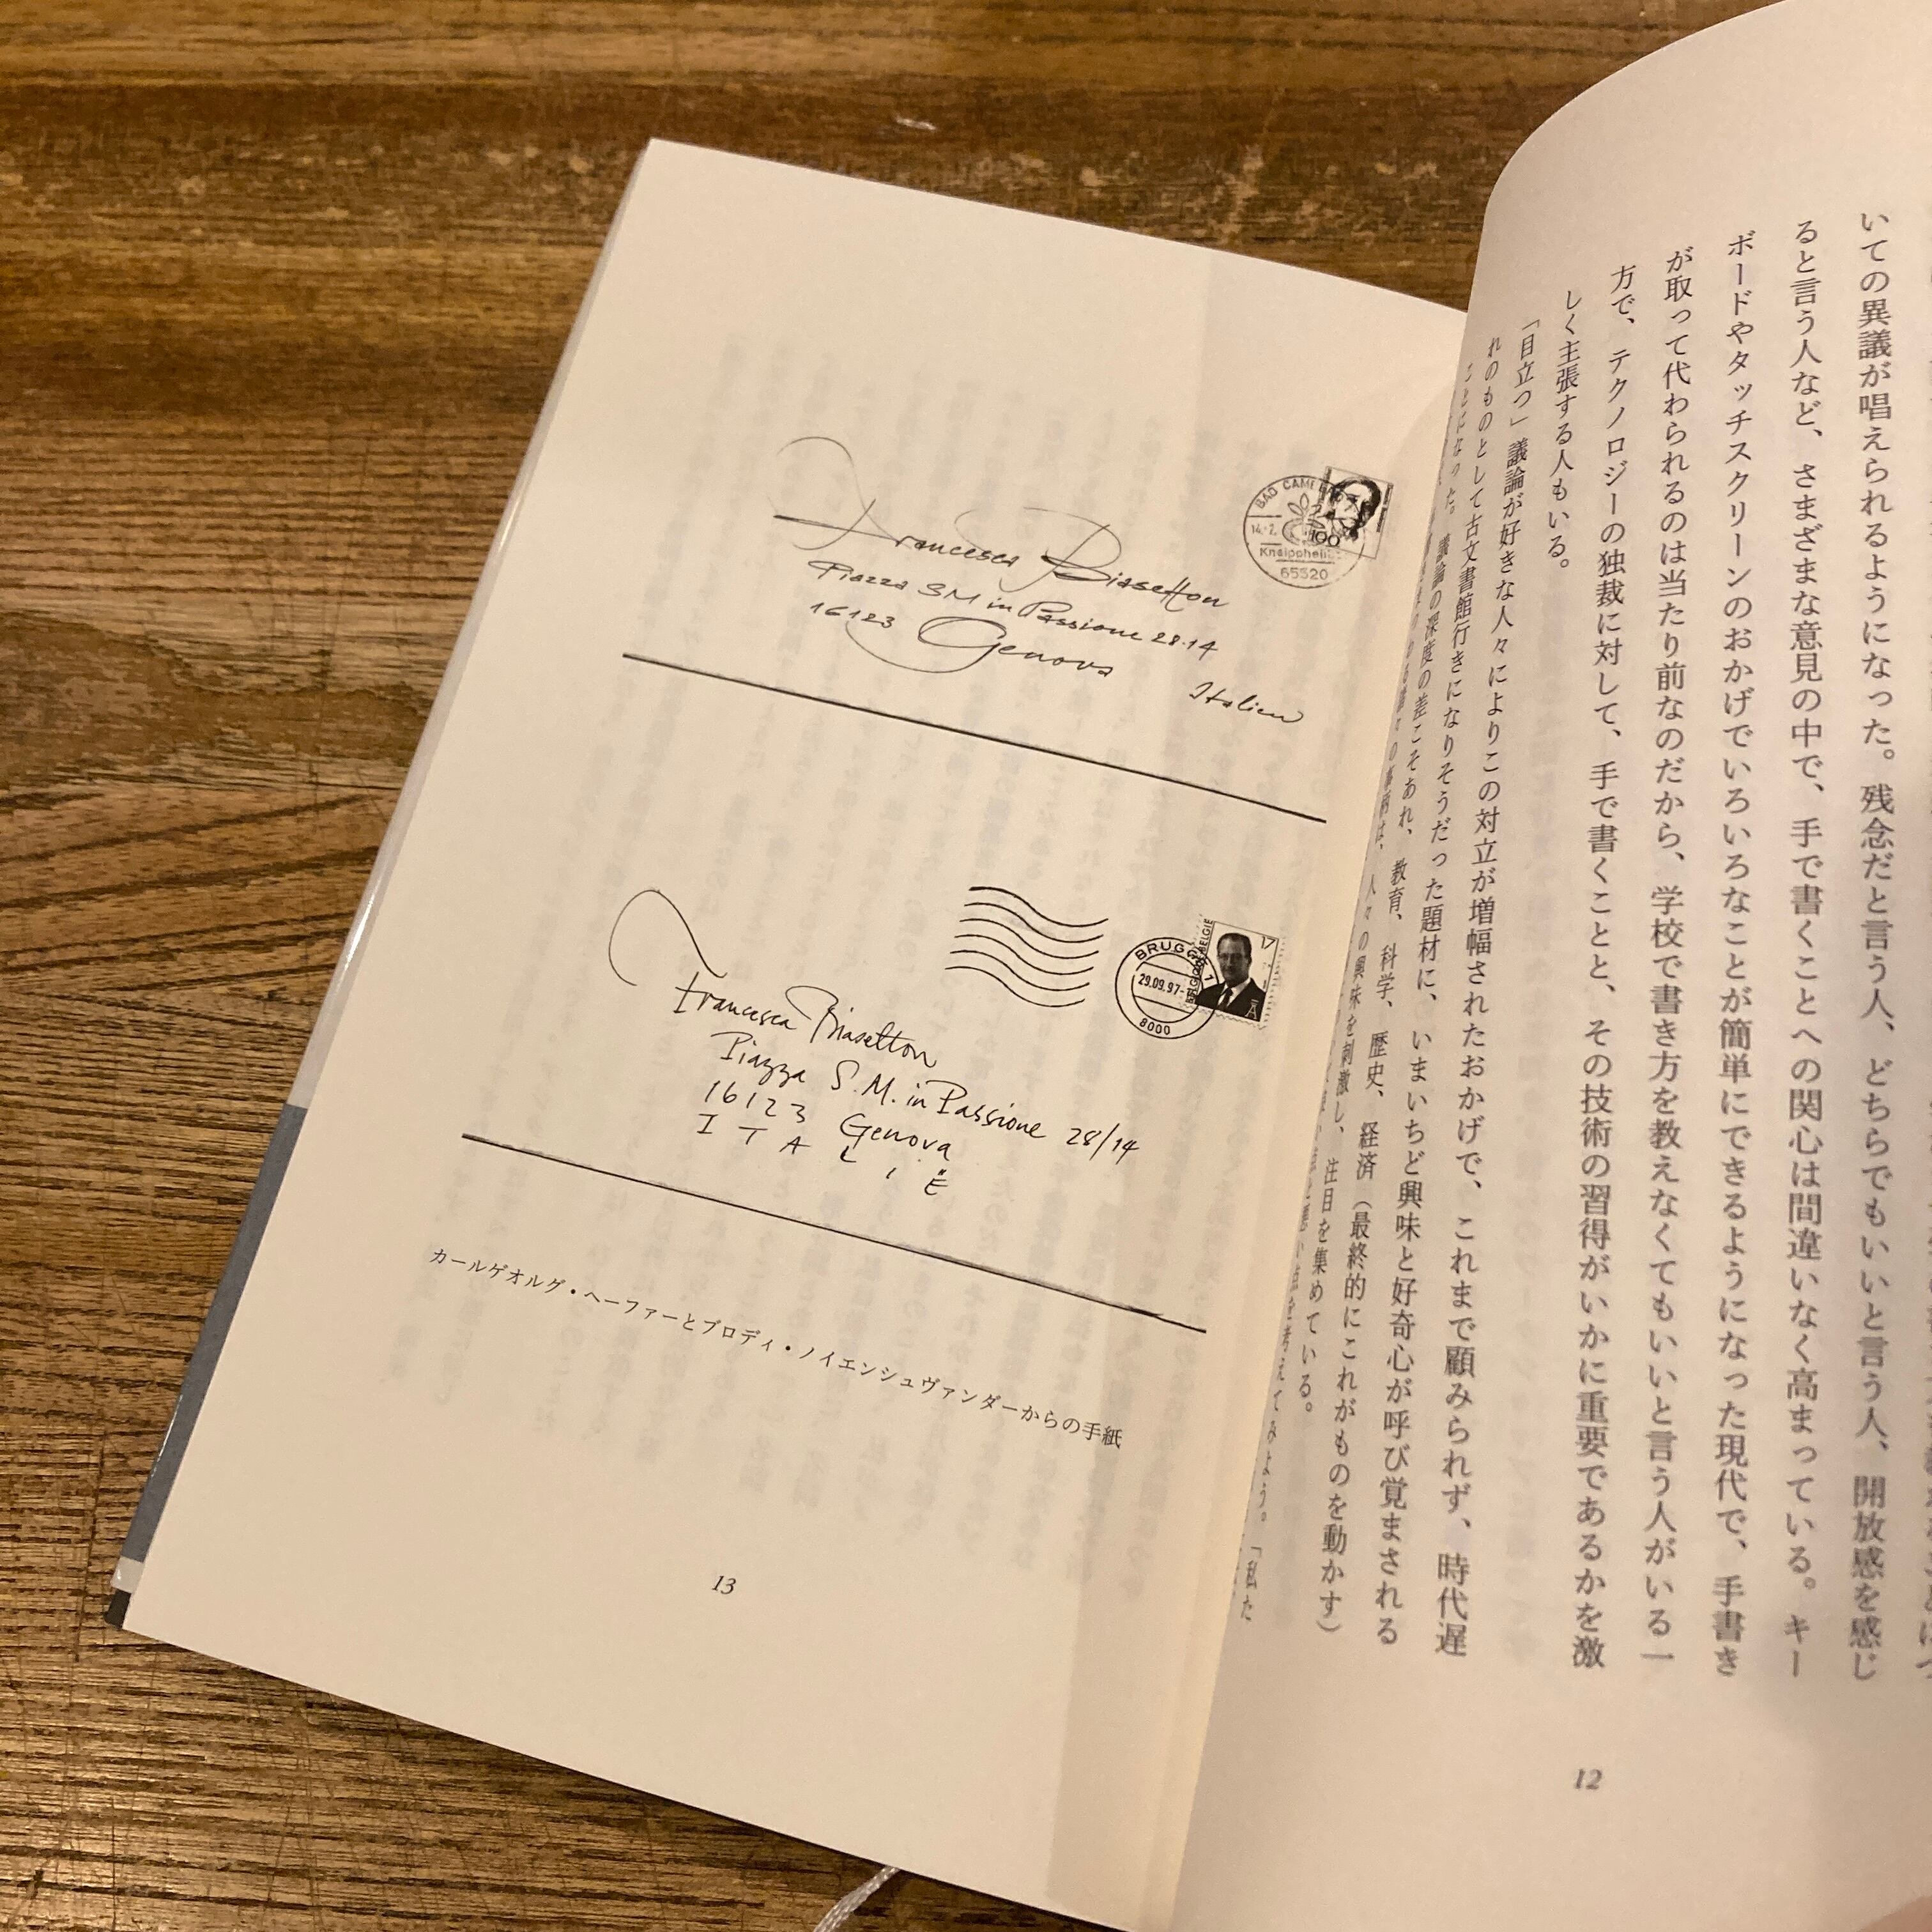 いての異議が唱えられるようになった。残念だと言う人、どちらでもいいと言う人、開放感を感じ
ると言う人など、さまざまな意見の中で、手で書くことへの関心は間違いなく高まっている。キー
ボードやタッチスクリーンのおかげでいろいろなことが簡単にできるようになった現代で、手書き
が取って代わられるのは当たり前なのだから、学校で書き方を教えなくてもいいと言う人がいる一
方で、テクノロジーの独裁に対して、手で書くことと、その技術の習得がいかに重要であるかを激
しく主張する人もいる。
「目立つ」議論が好きな人々によりこの対立が増幅されたおかげで、これまで顧みられず、時代遅
れのものとして古文書館行きになりそうだった題材に、いまいちど興味と好奇心が呼び覚まされる
ことになった。議論の深度の差こそあれ、教育、科学、歴史、経済（最終的にこれがものを動かす）
人々の興味を刺激し、注目を集めている。
考えてみよう。「私た
12
Francesca Biasetton
Piazza SM in Passione 28.14
16123 Genova
Italien
BAD CAM
14.2.
Kneippheil
65520
100
Francesca Biasetton
Piazza S.M. in Passione 28/14
16123 Genova
ITALIË
BRUGG
29.09.97
8000
17
BELGIE
カールゲオルグ・ヘーファーとブロディ・ノイエンシュヴァンダーからの手紙
13